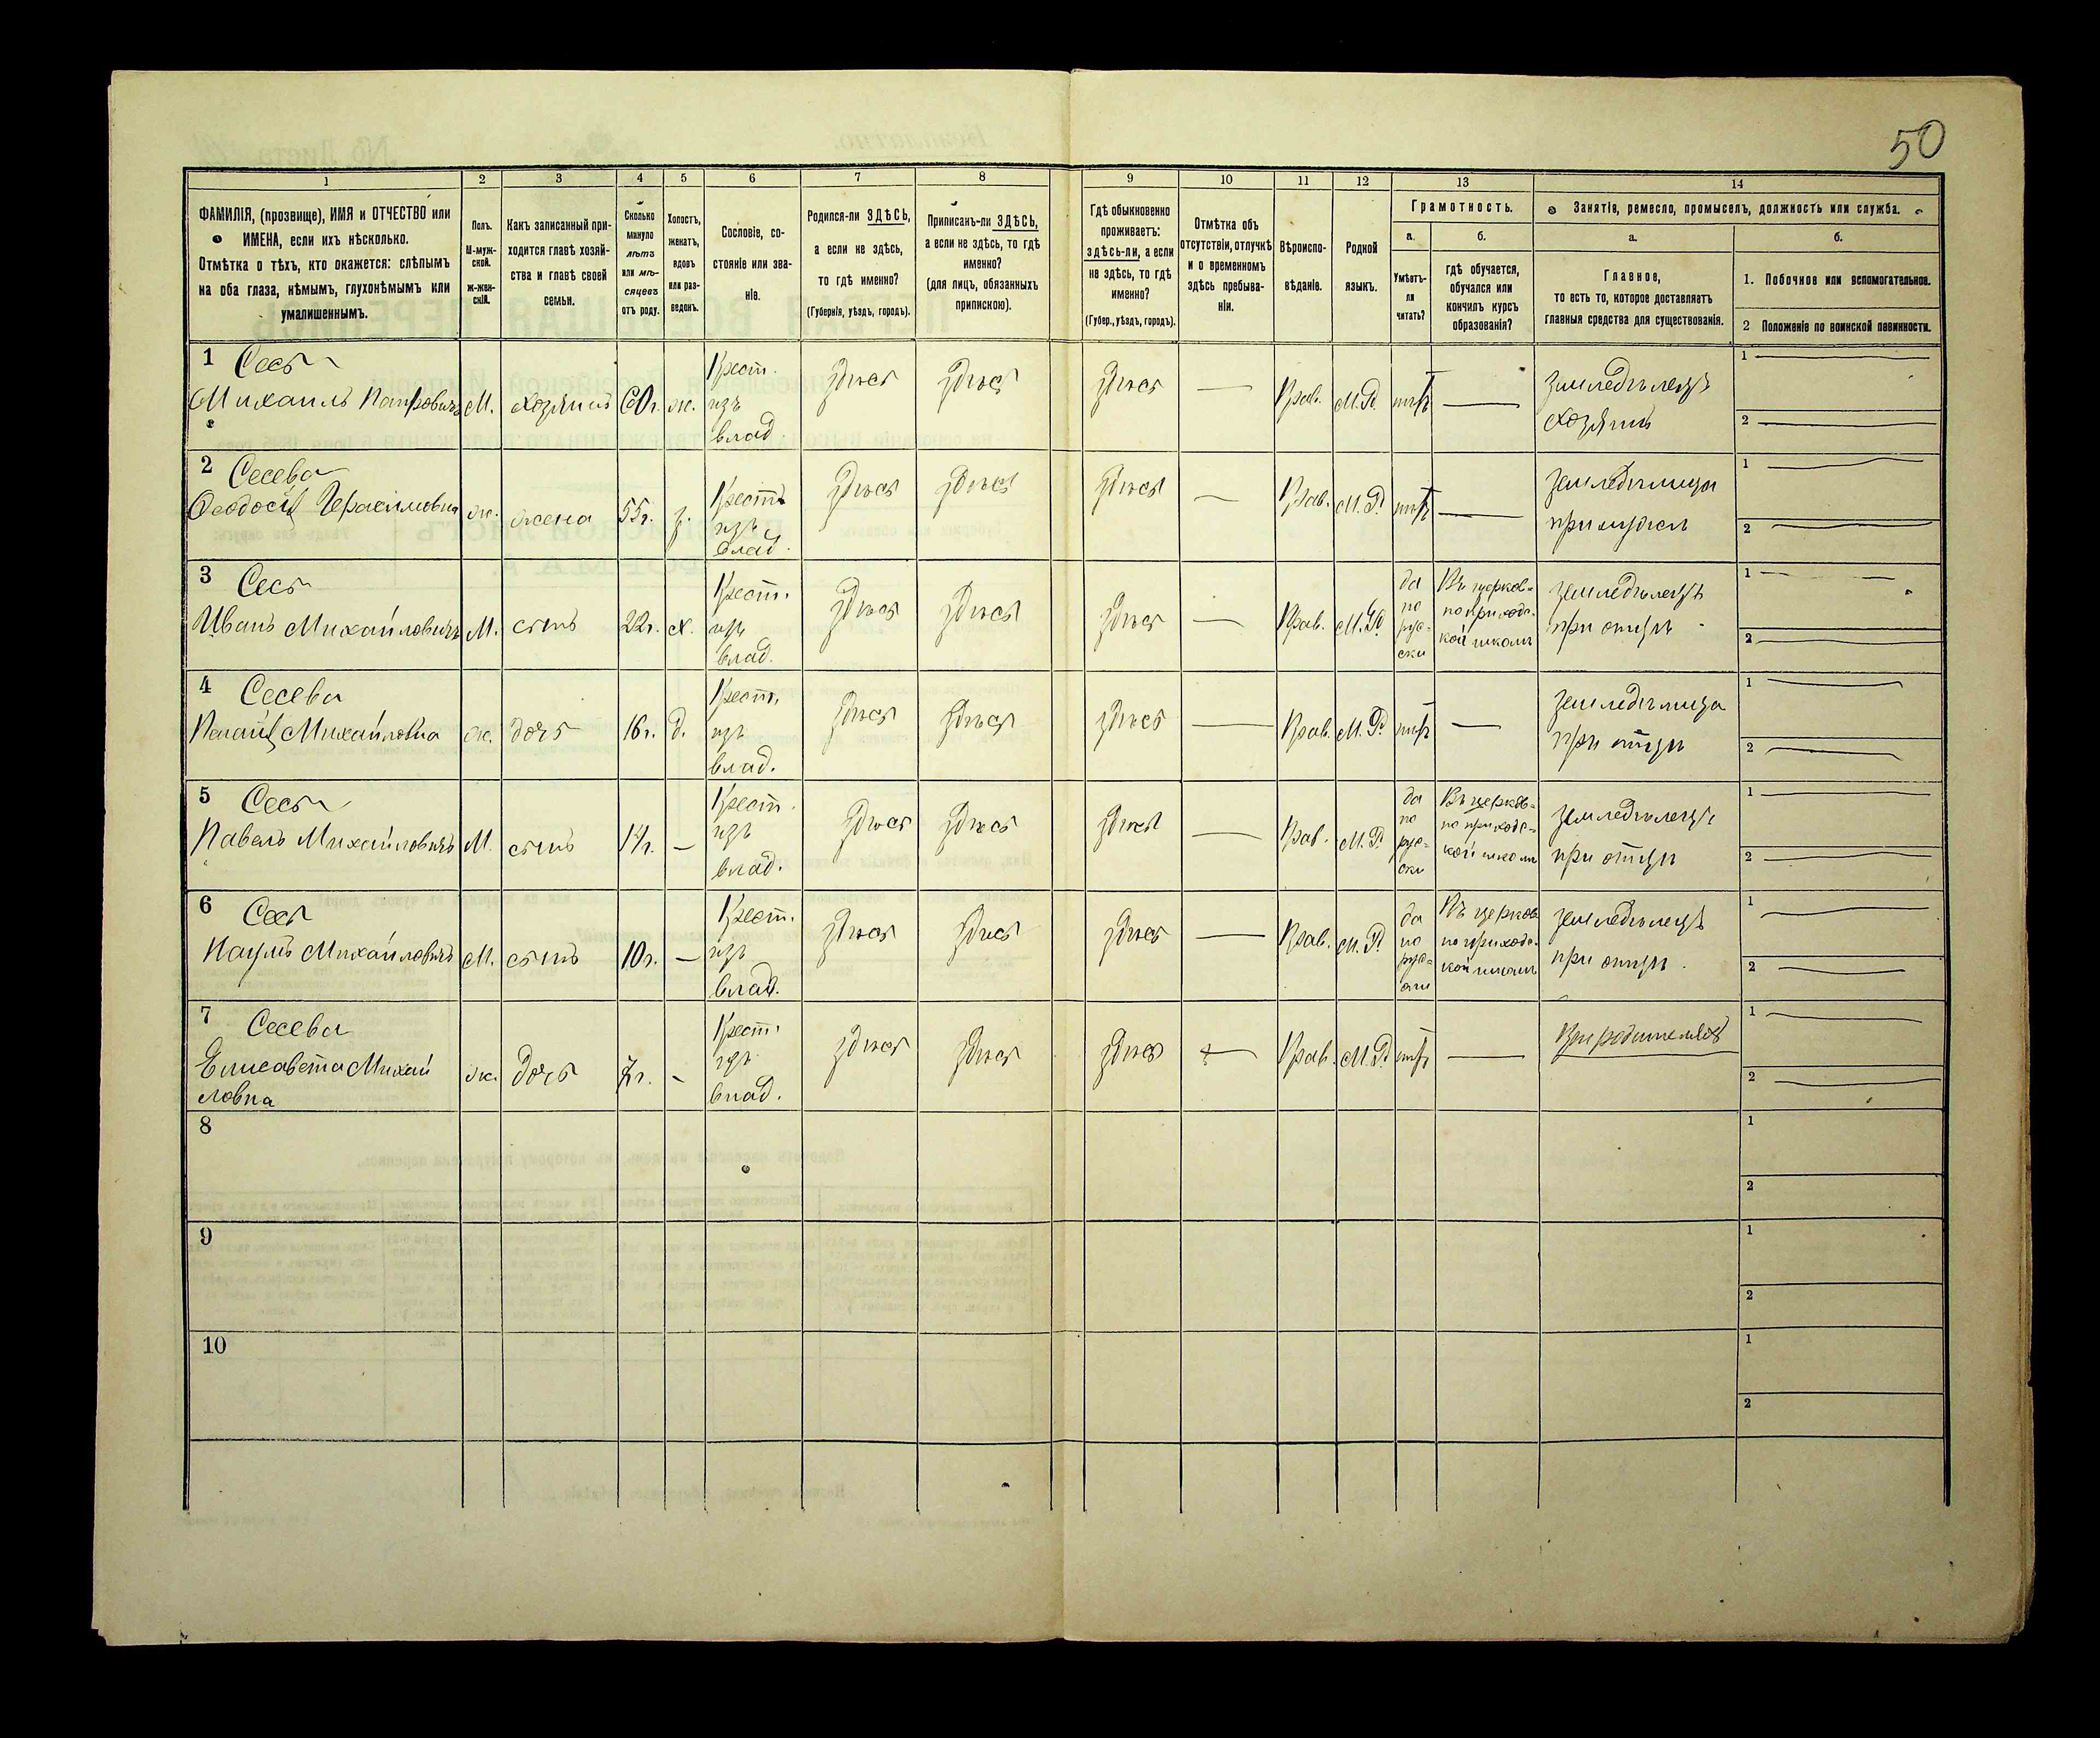 50
1 2 3 4 5 6 7 8 9 10 11 12 13 14
ФАМИЛІЯ, (прозвище), ИМЯ и ОТЧЕСТВО или
ИМЕНА, если ихъ нѣсколько.
Отмѣтка о тѣхъ, кто окажется: слѣпымъ
на оба глаза, нѣмымъ, глухонѣмымъ или
умалишеннымъ.
Полъ.
М-муж-
ской.
ж-жен-
скій.
Какъ записанный при-
ходится главѣ хозяй-
ства и главѣ своей
семьи.
Сколько
минуло
лѣтъ
или мѣ-
сяцевъ
отъ роду.
Холостъ,
женатъ,
вдовъ
или раз-
веденъ.
Сословіе, со-
стояніе или зва-
ніе.
Родился-ли ЗДѢСЬ,
а если не здѣсь,
то гдѣ именно?
(Губернія, уѣздъ, городъ).
Приписанъ-ли ЗДѢСЬ,
а если не здѣсь, то гдѣ
именно?
(для лицъ, обязанныхъ
припискою).
Гдѣ обыкновенно
проживаетъ:
здѣсь-ли, а если
не здѣсь, то гдѣ
именно?
(Губер., уѣздъ, городъ).
Отмѣтка объ
отсутствіи, отлучкѣ
и о временномъ
здѣсь пребыва-
ніи.
Вѣроиспо-
вѣданіе.
Родной
языкъ.
Грамотность.
а.
Умѣетъ-
ли
читать?
б.
гдѣ обучается,
обучался или
кончилъ курсъ
образованія?
Занятіе, ремесло, промыселъ, должность или служба.
а.
Главное,
то есть то, которое доставляетъ
главныя средства для существованія.
б.
1. Побочное или вспомогательное.
2 Положеніе по воинской повинности.
1
Михаилъ М. хозяинъ 60г. ж. Крест. изъ влад здѣсь здѣсь здѣсь — Прав. М.Р. нѣтъ — земледѣлецъ хозяинъ 1 — 2 —
2 Сесева
Герасимовна ж. жена 55г. з. Крест. изъ влад. здѣсь здѣсь здѣсь — Прав. М.Р. нѣтъ — земледѣлица при мужѣ 1 — 2 —
3
Иванъ Михайловичъ М. сынъ 22г. х. Крест. изъ влад. здѣсь здѣсь здѣсь — Прав. М.Р. да по рус-ски Въ церков-но приход-кой школѣ земледѣлецъ при отцѣ 1 — 2 —
4 Сесева
Михайловна ж. дочь 16г. д. Крест. изъ влад. здѣсь здѣсь здѣсь — Прав. М.Р. нѣтъ — земледѣлица при отцѣ 1 — 2 —
5
Павелъ Михайловичъ М. сынъ — Крест. изъ влад. здѣсь здѣсь здѣсь — Прав. М.Р. да по рус-ски Въ церков-но приход-кой школѣ земледѣлецъ при отцѣ 1 — 2 —
6
Наумъ Михайловичъ М. сынъ 10г. — Крест. изъ влад. здѣсь здѣсь здѣсь — Прав. М.Р. да по рус-ски Въ церков-но приход-кой школѣ земледѣлецъ при отцѣ 1 — 2 —
7 Сесева
Елисавета Михай
ловна ж. дочь 7г. - Крест. изъ влад. здѣсь здѣсь здѣсь — Прав. М.Р. нѣтъ — При родителяхъ 1 — 2 —
8 1 2
9 1 2
10 1 2